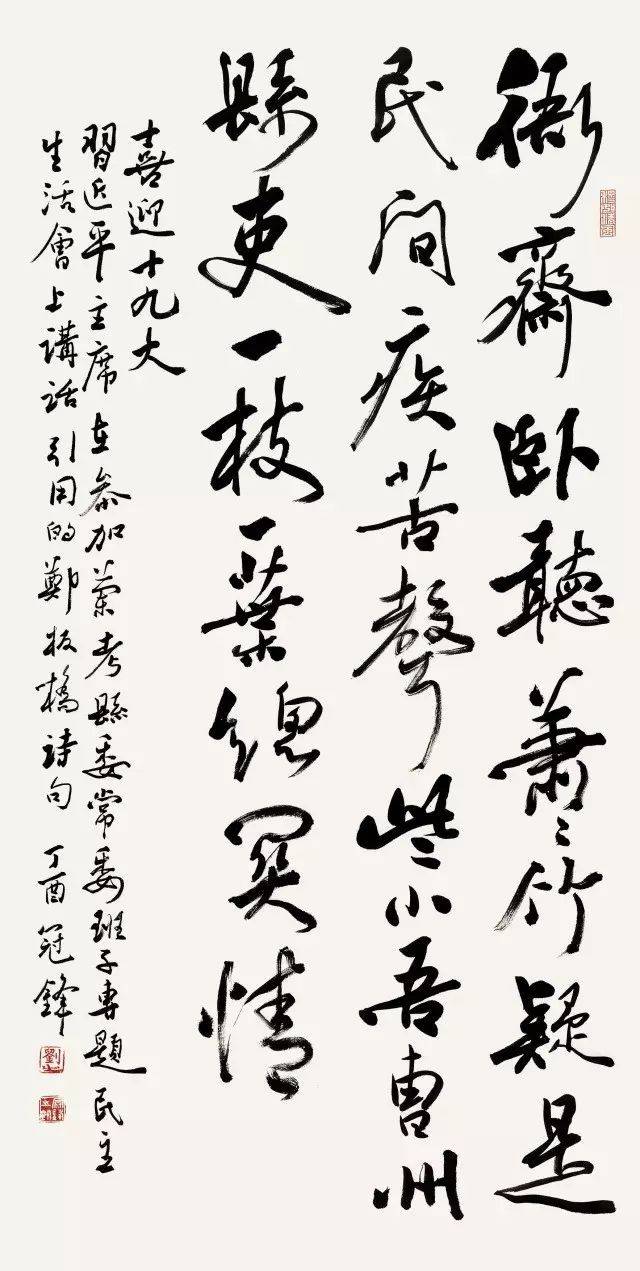 衙齋卧聽蕭〻竹疑是
民间疾苦聲些小吾曹州
縣吏一枝一葉總関情
喜迎十九大
習近平主席在参加蘭考縣委常委班子專題民主
生活會上講話引用的鄭板橋詩句 丁酉冠鋒
劉